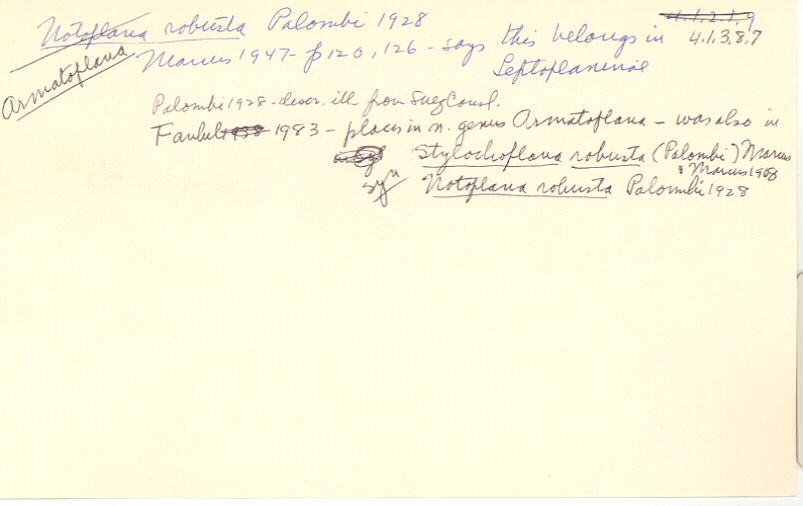 Notoplana robusta Palombi 1928
4.1.2.1.9
4.1.3.8.7
Armatoplana
Marcus 1947 - p 120, 126 - says this belongs in
Leptoplaninae
Palombi 1928 - descr. ill. from Suez Canal.
Faubel 1983 - places in n. genus Armatoplana - was also in
Stylochoplana robusta (Palombi) Marcus
& Marcus 1968
syn Notoplana robusta Palombi 1928